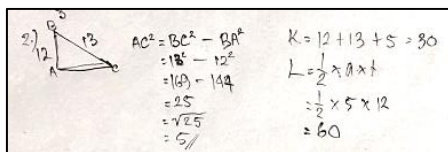 2.)
B
5
12
13
A
C
AC² = BC² - BA²
= 13² - 12²
= 169 - 144
= 25
= √25
= 5 //
K = 12 + 13 + 5 = 30
L = 1/2 × a × t
= 1/2 × 5 × 12
= 60